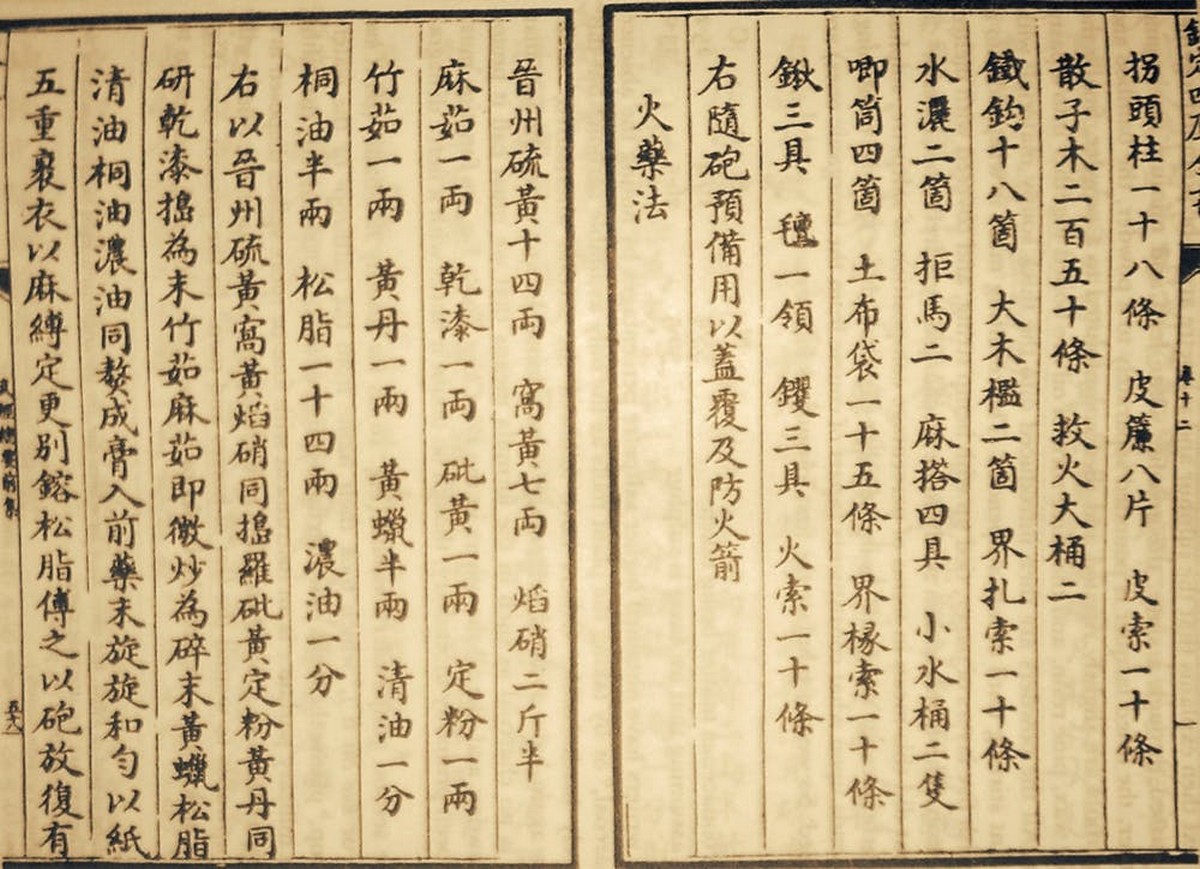 欽定四庫全書
卷十二
拐頭柱一十八條　皮簾八片　皮索一十條
散子木二百五十條　救火大桶二
鐵鈎十八箇　大木檻二箇　界扎索一十條
水濺二箇　拒馬二　麻搭四具　小水桶二隻
唧筒四箇　土布袋一十五條　界椽索一十條
鍬三具　氊一領　钁三具　火索一十條
右隨砲預備用以蓋覆及防火箭
火藥法
晉州硫黃十四兩　窩黃七兩　焰硝二斤半
麻茹一兩　乾漆一兩　砒黃一兩　定粉一兩
竹茹一兩　黃丹一兩　黃蠟半兩　清油一分
桐油半兩　松脂一十四兩　濃油一分
右以晉州硫黃窩黃焰硝同搗羅砒黃定粉黃丹同
研乾漆搗為末竹茹麻茹即微炒為碎末黃蠟松脂
清油桐油濃油同熬成膏入前藥末旋旋和勻以紙
五重裹衣以麻縛定更別鎔松脂傅之以砲放復有
武經總要前集